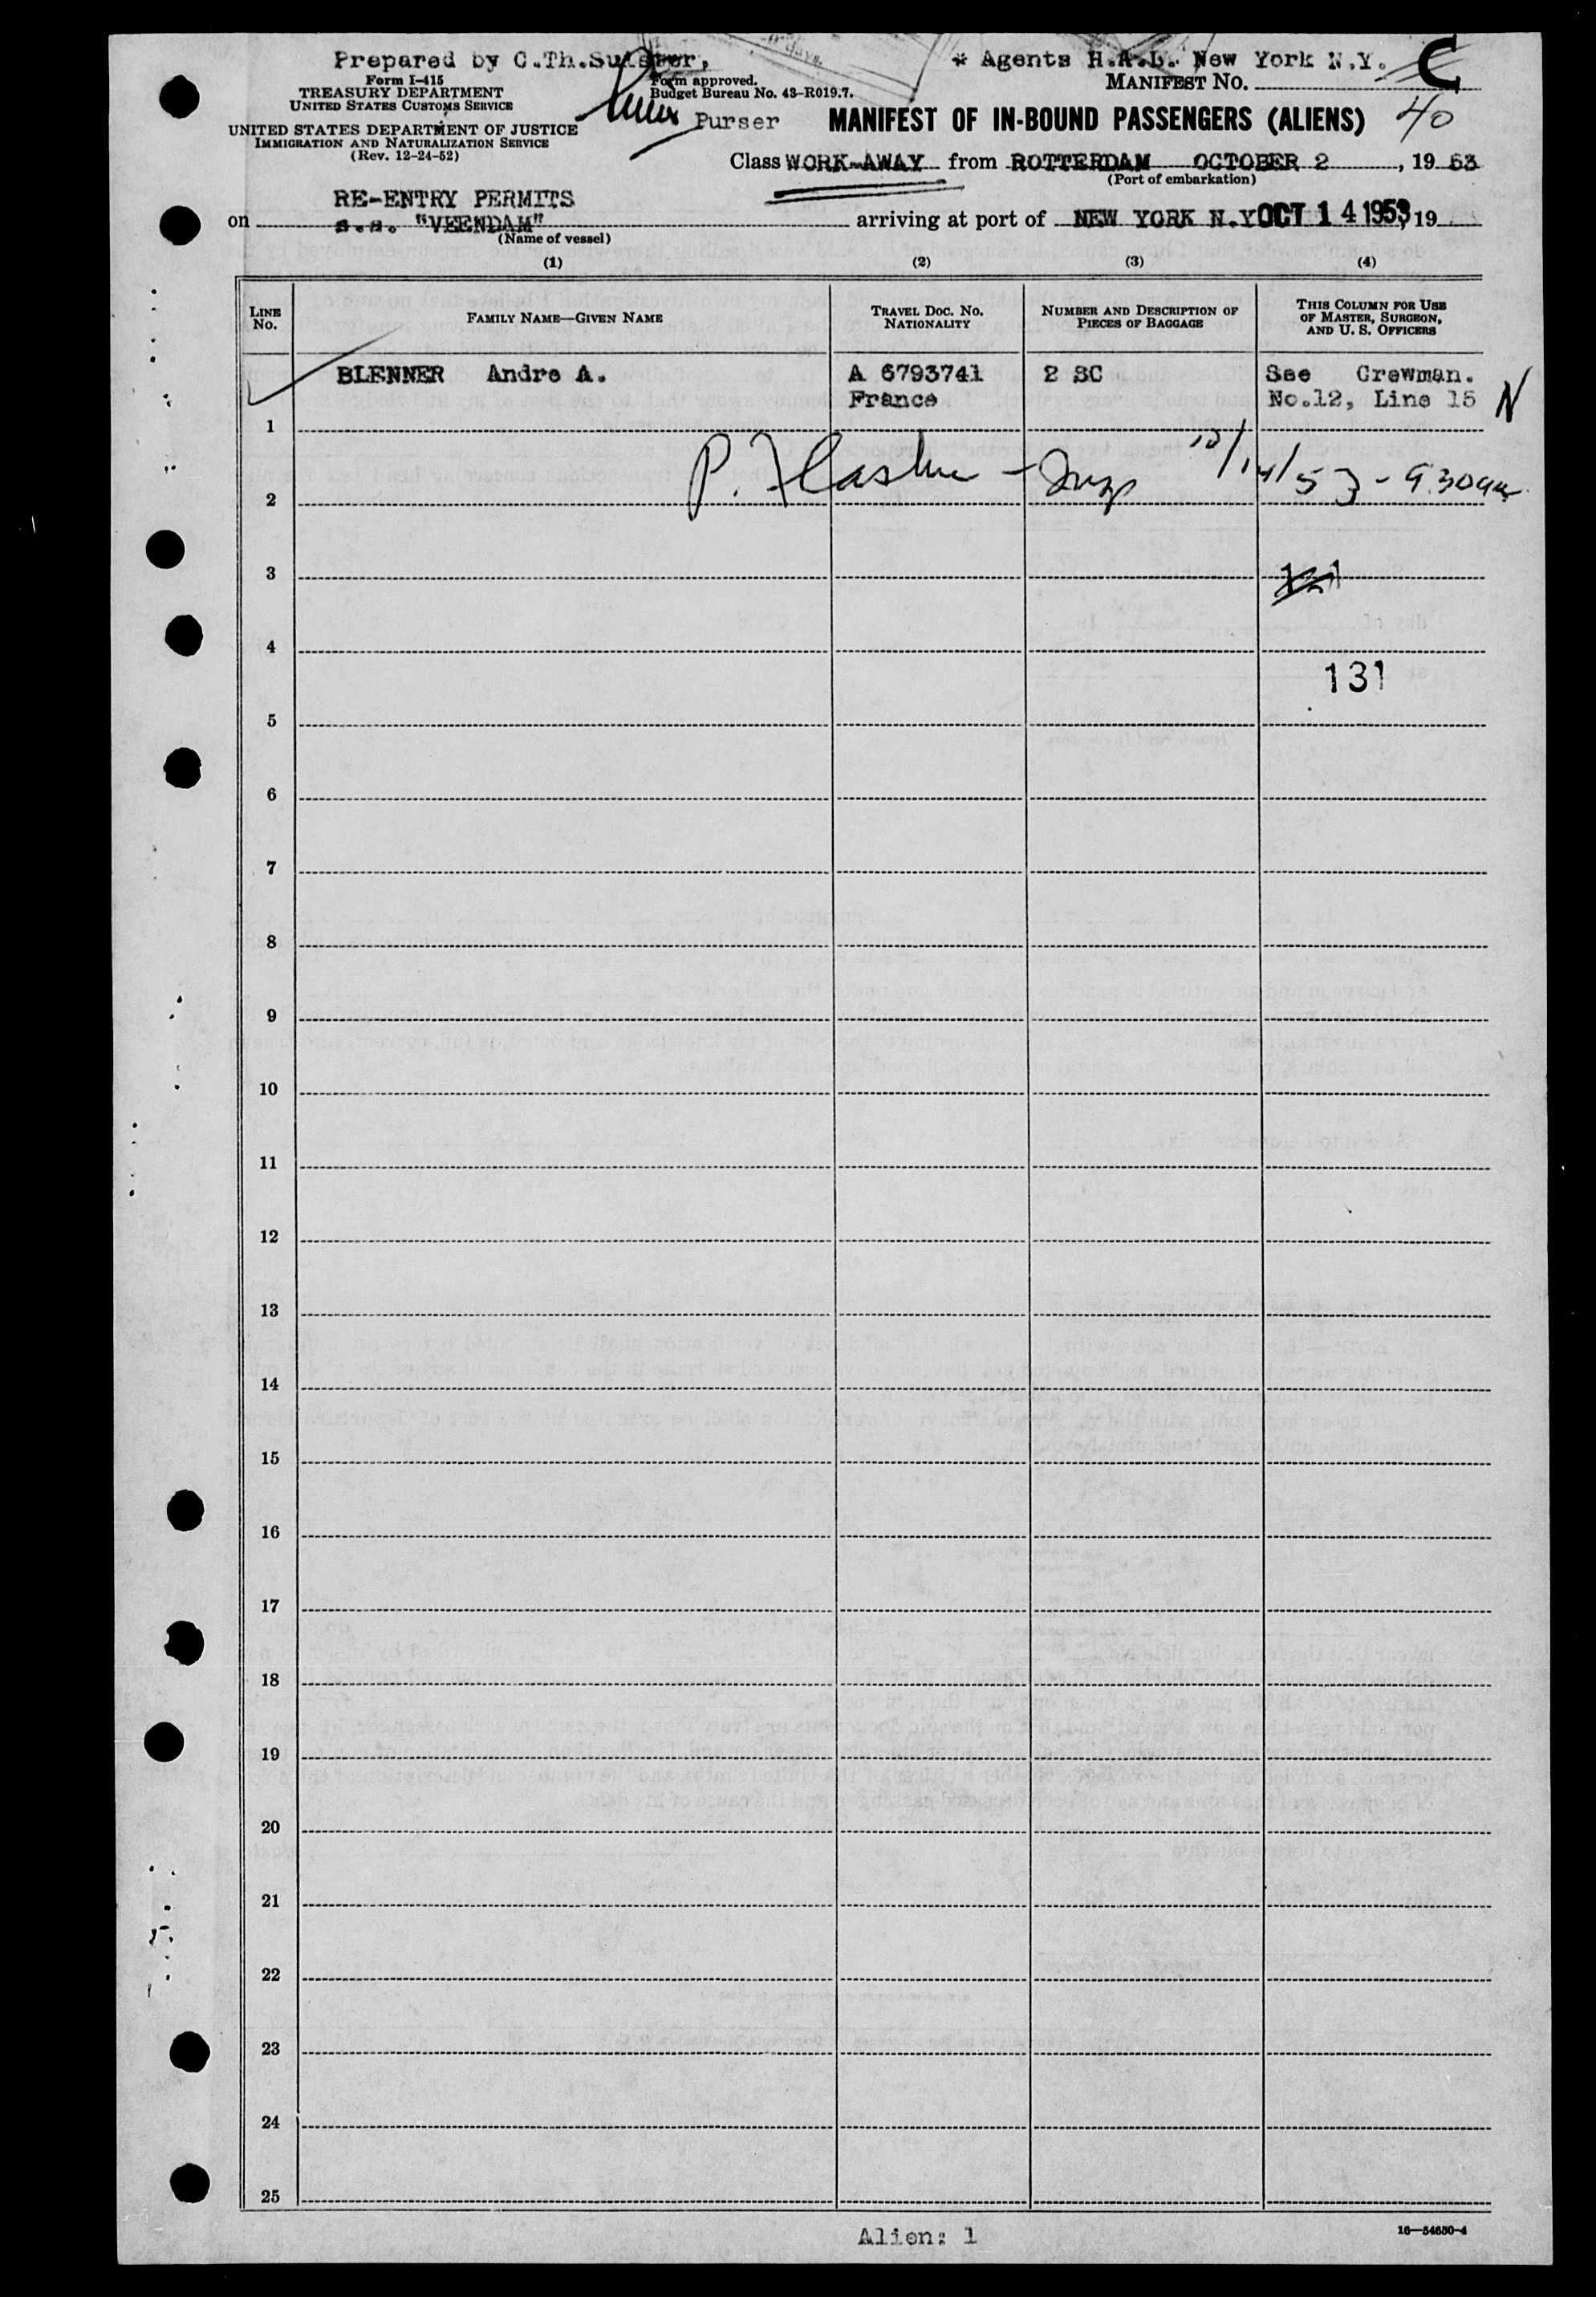 Prepared by C.Th.Suister, * Agents H.A.L. New York N.Y. C
Form I-415
TREASURY DEPARTMENT
UNITED STATES CUSTOMS SERVICE
Form approved.
Budget Bureau No. 43-R019.7.
MANIFEST NO.
40
Purser
UNITED STATES DEPARTMENT OF JUSTICE
IMMIGRATION AND NATURALIZATION SERVICE
(Rev. 12-24-52)
MANIFEST OF IN-BOUND PASSENGERS (ALIENS)
Class WORK-AWAY from ROTTERDAM OCTOBER 2, 19 53
(Port of embarkation)
RE-ENTRY PERMITS
on s.s. "VEENDAM" arriving at port of NEW YORK N.Y OCT 14 1953, 19
(Name of vessel)
(1) (2) (3) (4)
LINE NO. FAMILY NAME—GIVEN NAME TRAVEL DOC. NO. NATIONALITY NUMBER AND DESCRIPTION OF PIECES OF BAGGAGE THIS COLUMN FOR USE OF MASTER, SURGEON, AND U. S. OFFICERS
BLENNER Andre A. A 6793741 2 SC See Crewman.
France No.12, Line 15 N
1
10/14/53 - 9.30am
2
3
4
131
5
6
7
8
9
10
11
12
13
14
15
16
17
18
19
20
21
22
23
24
25
Alien: 1
16—54650-4